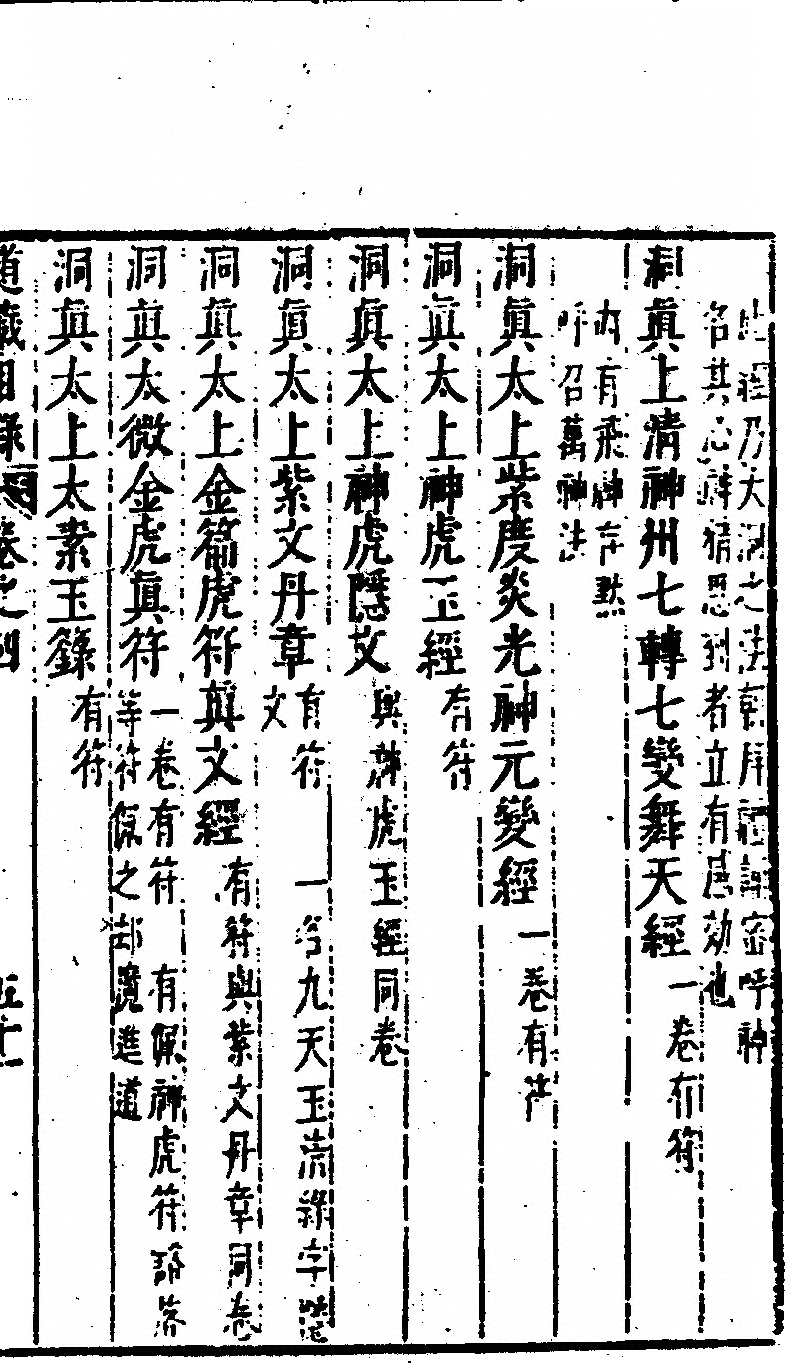 此經乃大洞之法朝拜禮謝密呼神
名其心辨精思到者立有感効也
洞真上清神州七轉七變舞天經一卷有符
內有飛神存默
呼召萬神法
洞真太上紫度炎光神元變經一卷有符
洞真太上神虎玉經有符
洞真太上神虎隱文與神虎玉經同卷
洞真太上紫文丹章有符 一名九天玉字
文
洞真太上金篇虎符真文經有符與紫文丹章同卷
洞真太微金虎真符一卷有符 有佩神虎符
等符佩之却魔進道
洞真太上太素玉籙有符
道藏目錄卷之四 五十一